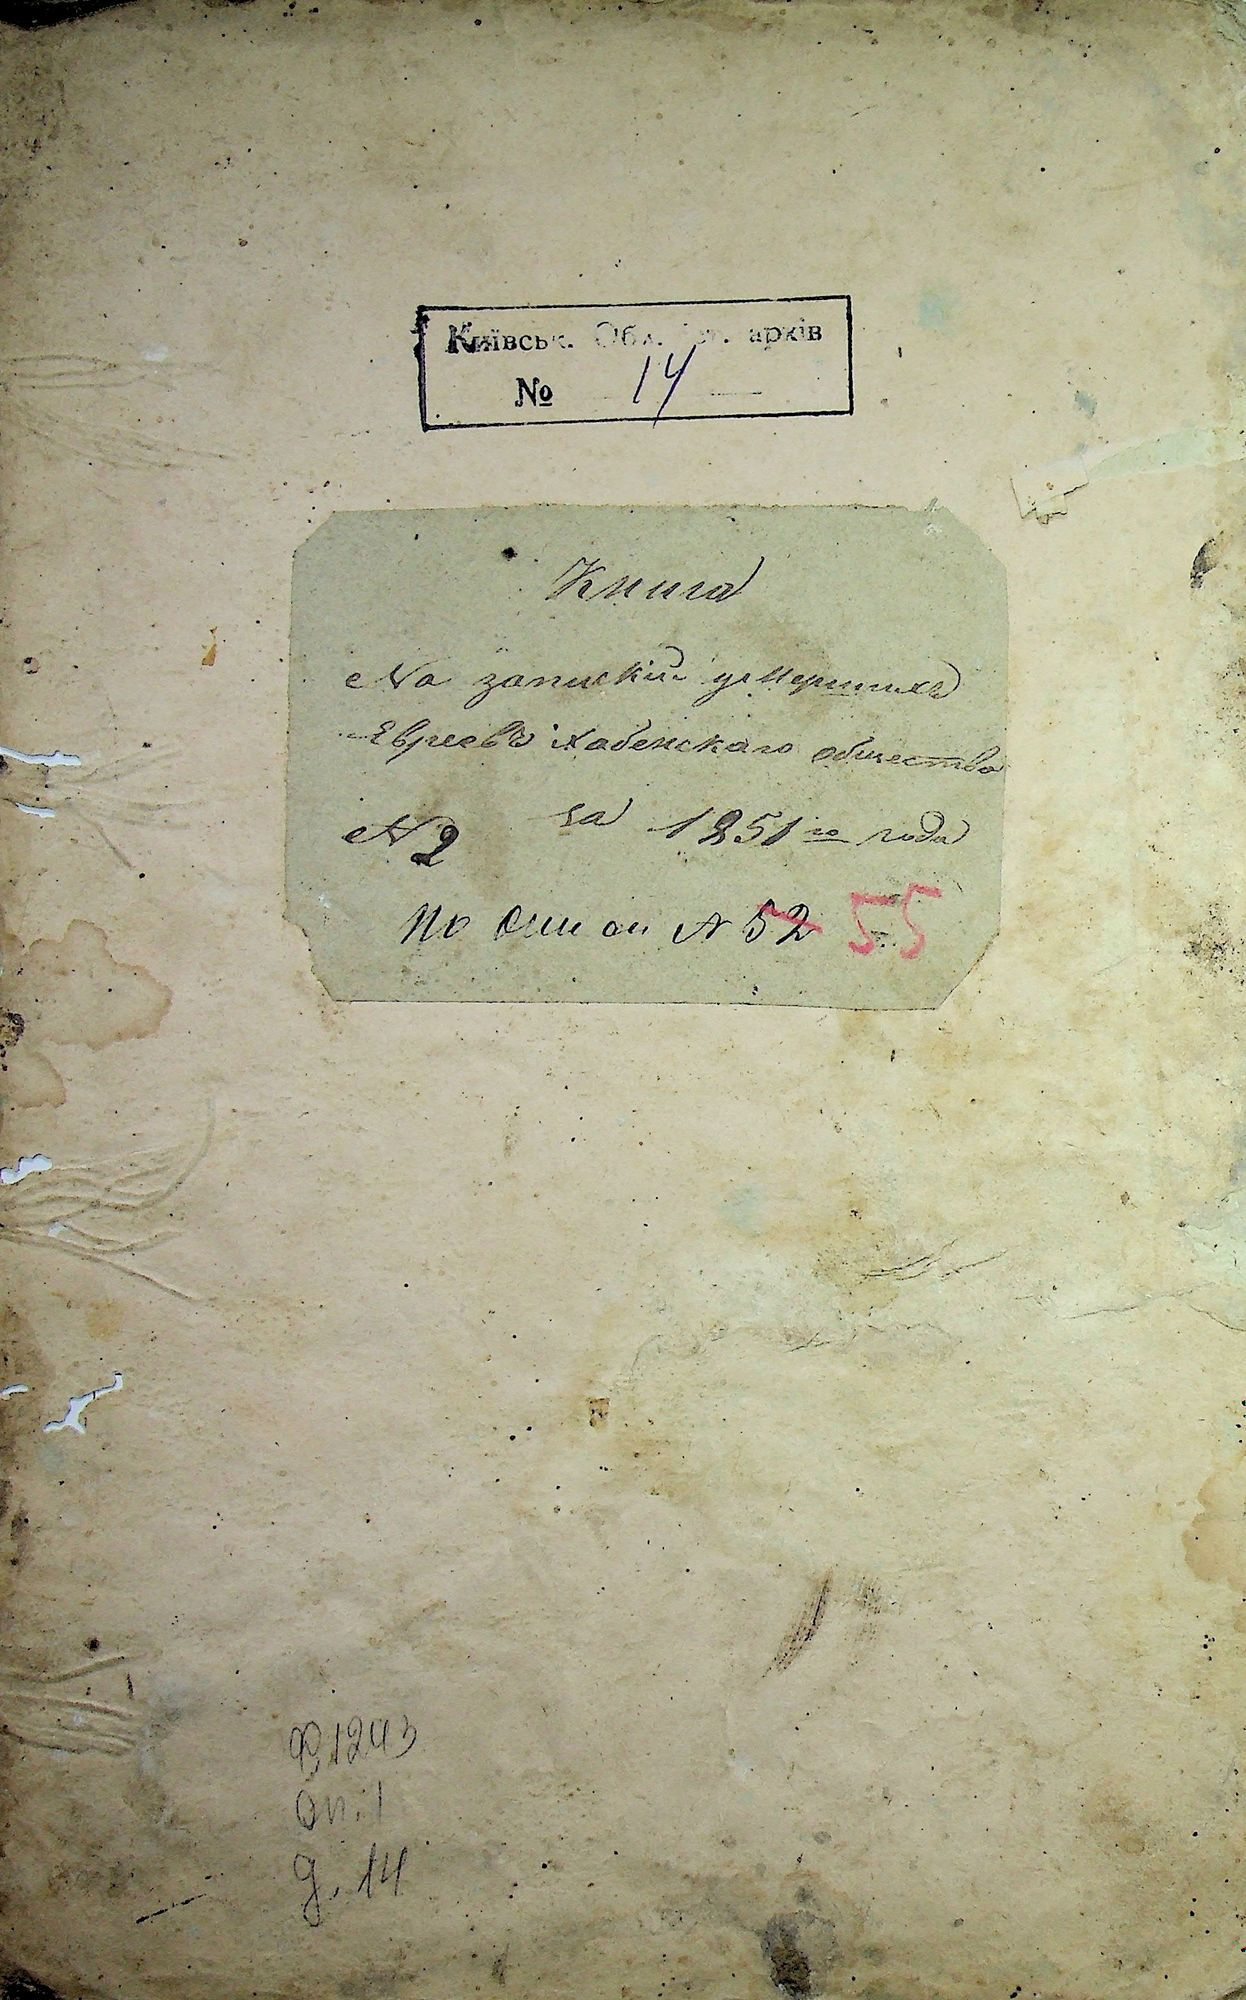 Київськ. Обл. іст. архів
№ 14
Книга
На записки умершихъ
Евреевъ Хабенскаго общества
№ 2 за 1851 го года
По описи № 52 55
Ф 1243
оп. 1
д. 14